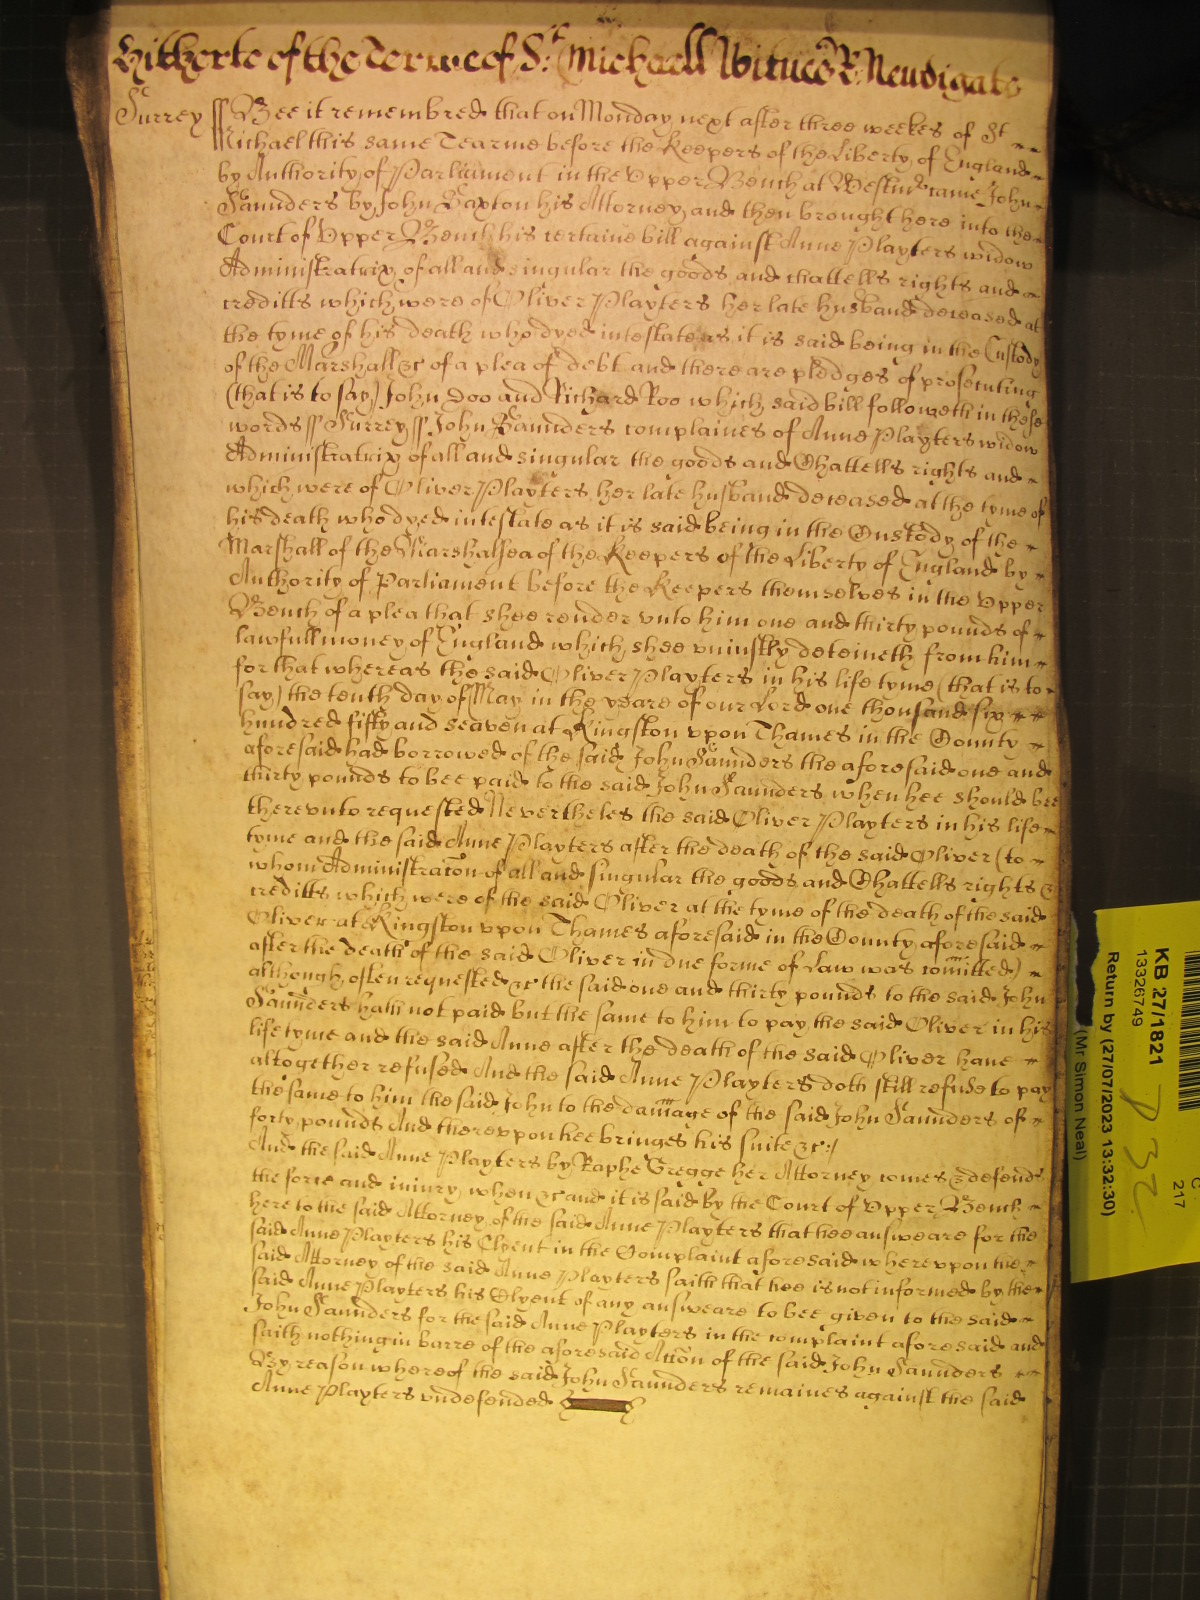 Hitherto of the Terme of St. Michaell Witnes R: Neudigate
Surrey ss Bee it remembred that on Monday next after three weekes of St
Michael this same Tearme before the Keepers of the Liberty of England
by Authority of Parliament in the Vpper Bench at Westmr came John
Saunders by John Baxton his Attorney and then brought here into the
Court of Vpper Bench his certaine bill against Anne Playters widow
Administratrix of all and singular the goods and chattells rights and
creditts which were of Oliver Playters her late husband deceased at
the tyme of his death who dyed intestate as it is said being in the Custody
of the Marshall &c of a plea of debt and there are pledges of prosecuting
(that is to say) John Doo and Richard Roo which said bill followeth in these
words ss Surrey ss John Saunders complaines of Anne Playters widow
Administratrix of all and singular the goods and Chattells rights and
which were of Oliver Playters her late husband deceased at the tyme of
his death who dyed intestate as it is said being in the Custody of the
Marshall of the Marshalsea of the Keepers of the Liberty of England by
Authority of Parliament before the Keepers themselves in the Vpper
Bench of a plea that shee render vnto him one and thirty pounds of
lawfull money of England which shee vniustly deteineth from him
for that whereas the said Oliver Playters in his life tyme (that is to
say) the tenth day of May in the yeare of our Lord one thousand six
hundred fifty and seaven at Kingston vpon Thames in the County
aforesaid had borrowed of the said John Saunders the aforesaid one and
thirty pounds to bee paid to the said John Saunders when hee should bee
therevnto requested Nevertheles the said Oliver Playters in his life
tyme and the said Anne Playters after the death of the said Oliver (to
whom Administracōn of all and singular the goods and Chattells rights &
creditts which were of the said Oliver at the tyme of the death of the said
Oliver at Kingston vpon Thames aforesaid in the County aforesaid
after the death of the said Oliver in due forme of Law was com̄itted)
although often requested &c the said one and thirty pounds to the said John
Saunders hath not paid but the same to him to pay the said Oliver in his
life tyme and the said Anne after the death of the said Oliver haue
altogether refused And the said Anne Playters doth still refuse to pay
the same to him the said John to the dam̄age of the said John Saunders of
forty pounds And therevpon hee bringes his suite &c:/
And the said Anne Playters by Raphe Gregge her Attorney comes & defends
the force and iniury when &c and it is said by the Court of Vpper Bench
here to the said Attorney of the said Anne Playters that hee answeare for the
said Anne Playters his Clyent in the Complaint aforesaid wherevpon the
said Attorney of the said Anne Playters saith that hee is not informed by the
said Anne Playters his Clyent of any answeare to bee given to the said
John Saunders for the said Anne Playters in the complaint aforesaid and
saith nothing in barre of the aforesaid Accōn of the said John Saunders
By reason whereof the said John Saunders remaines against the said
Anne Playters vndefended
KB 27/1821
13326749
Return by (27/07/2023 13:32:30)
(Mr Simon Neal)
217